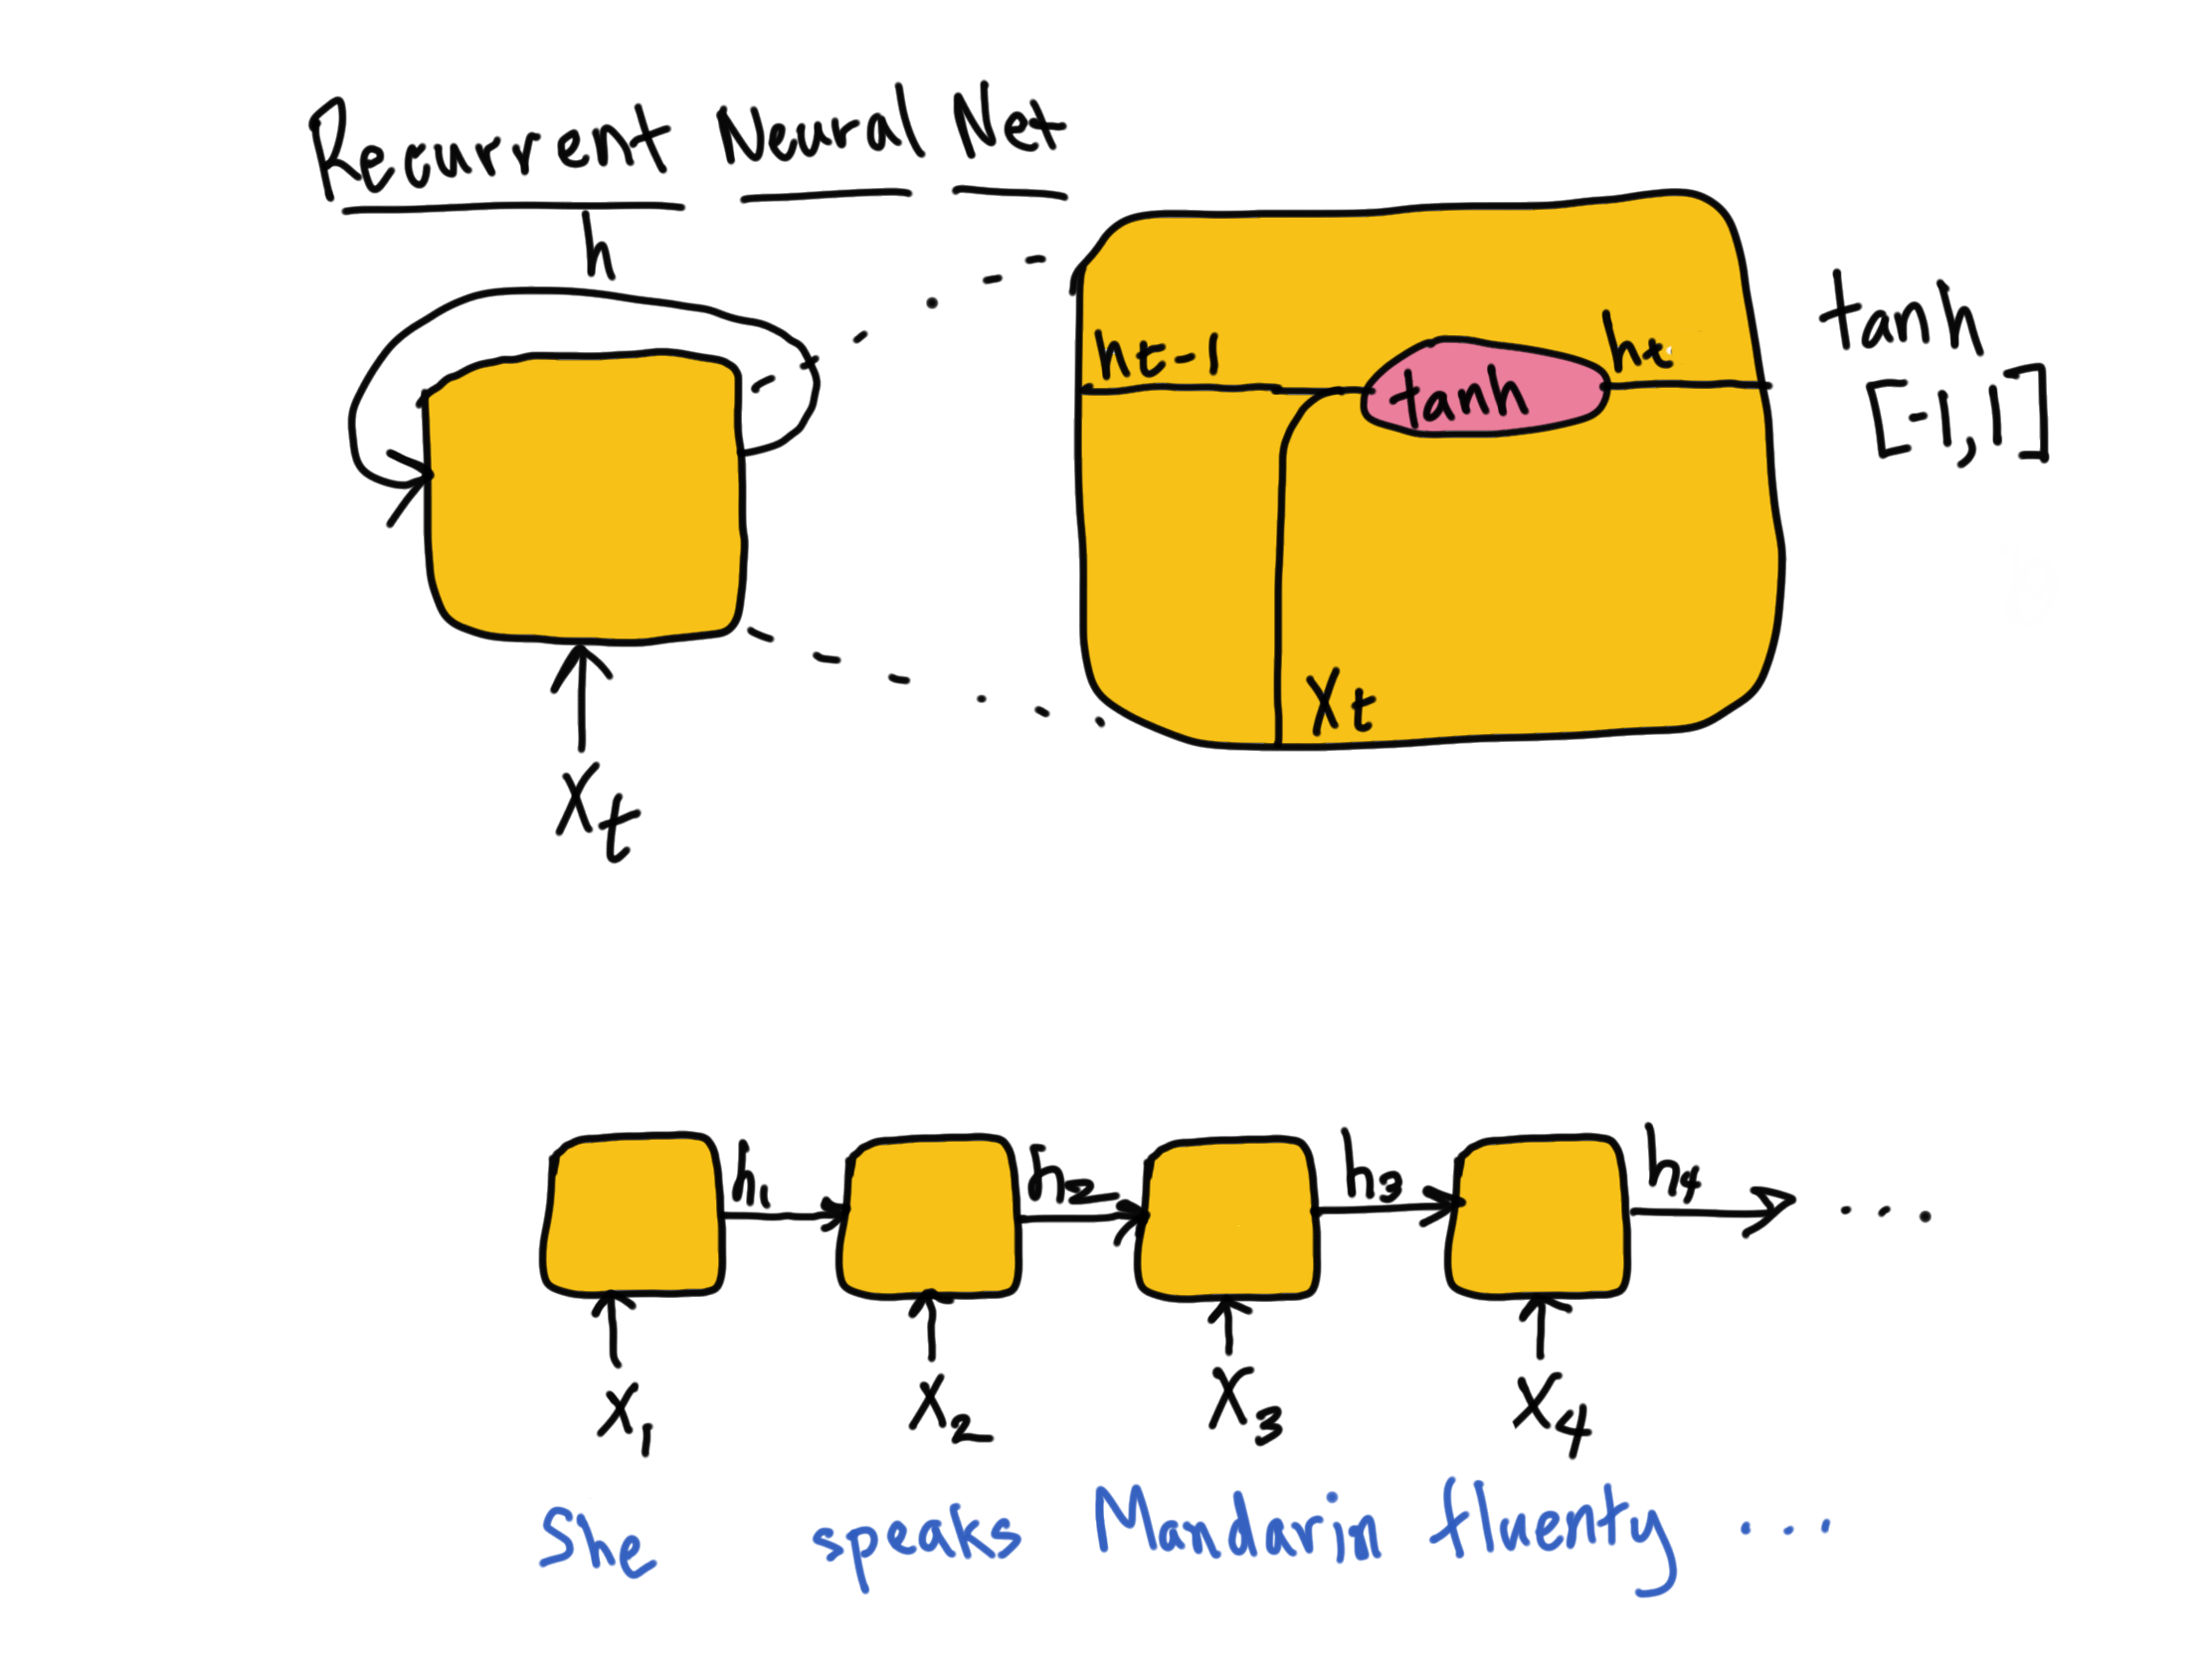 Recurrent Neural Net
h
ht-1
tanh
ht
tanh
[-1,1]
Xt
Xt
h1
h2
h3
h4
...
X1
X2
X3
X4
She speaks Mandarin fluenty ...